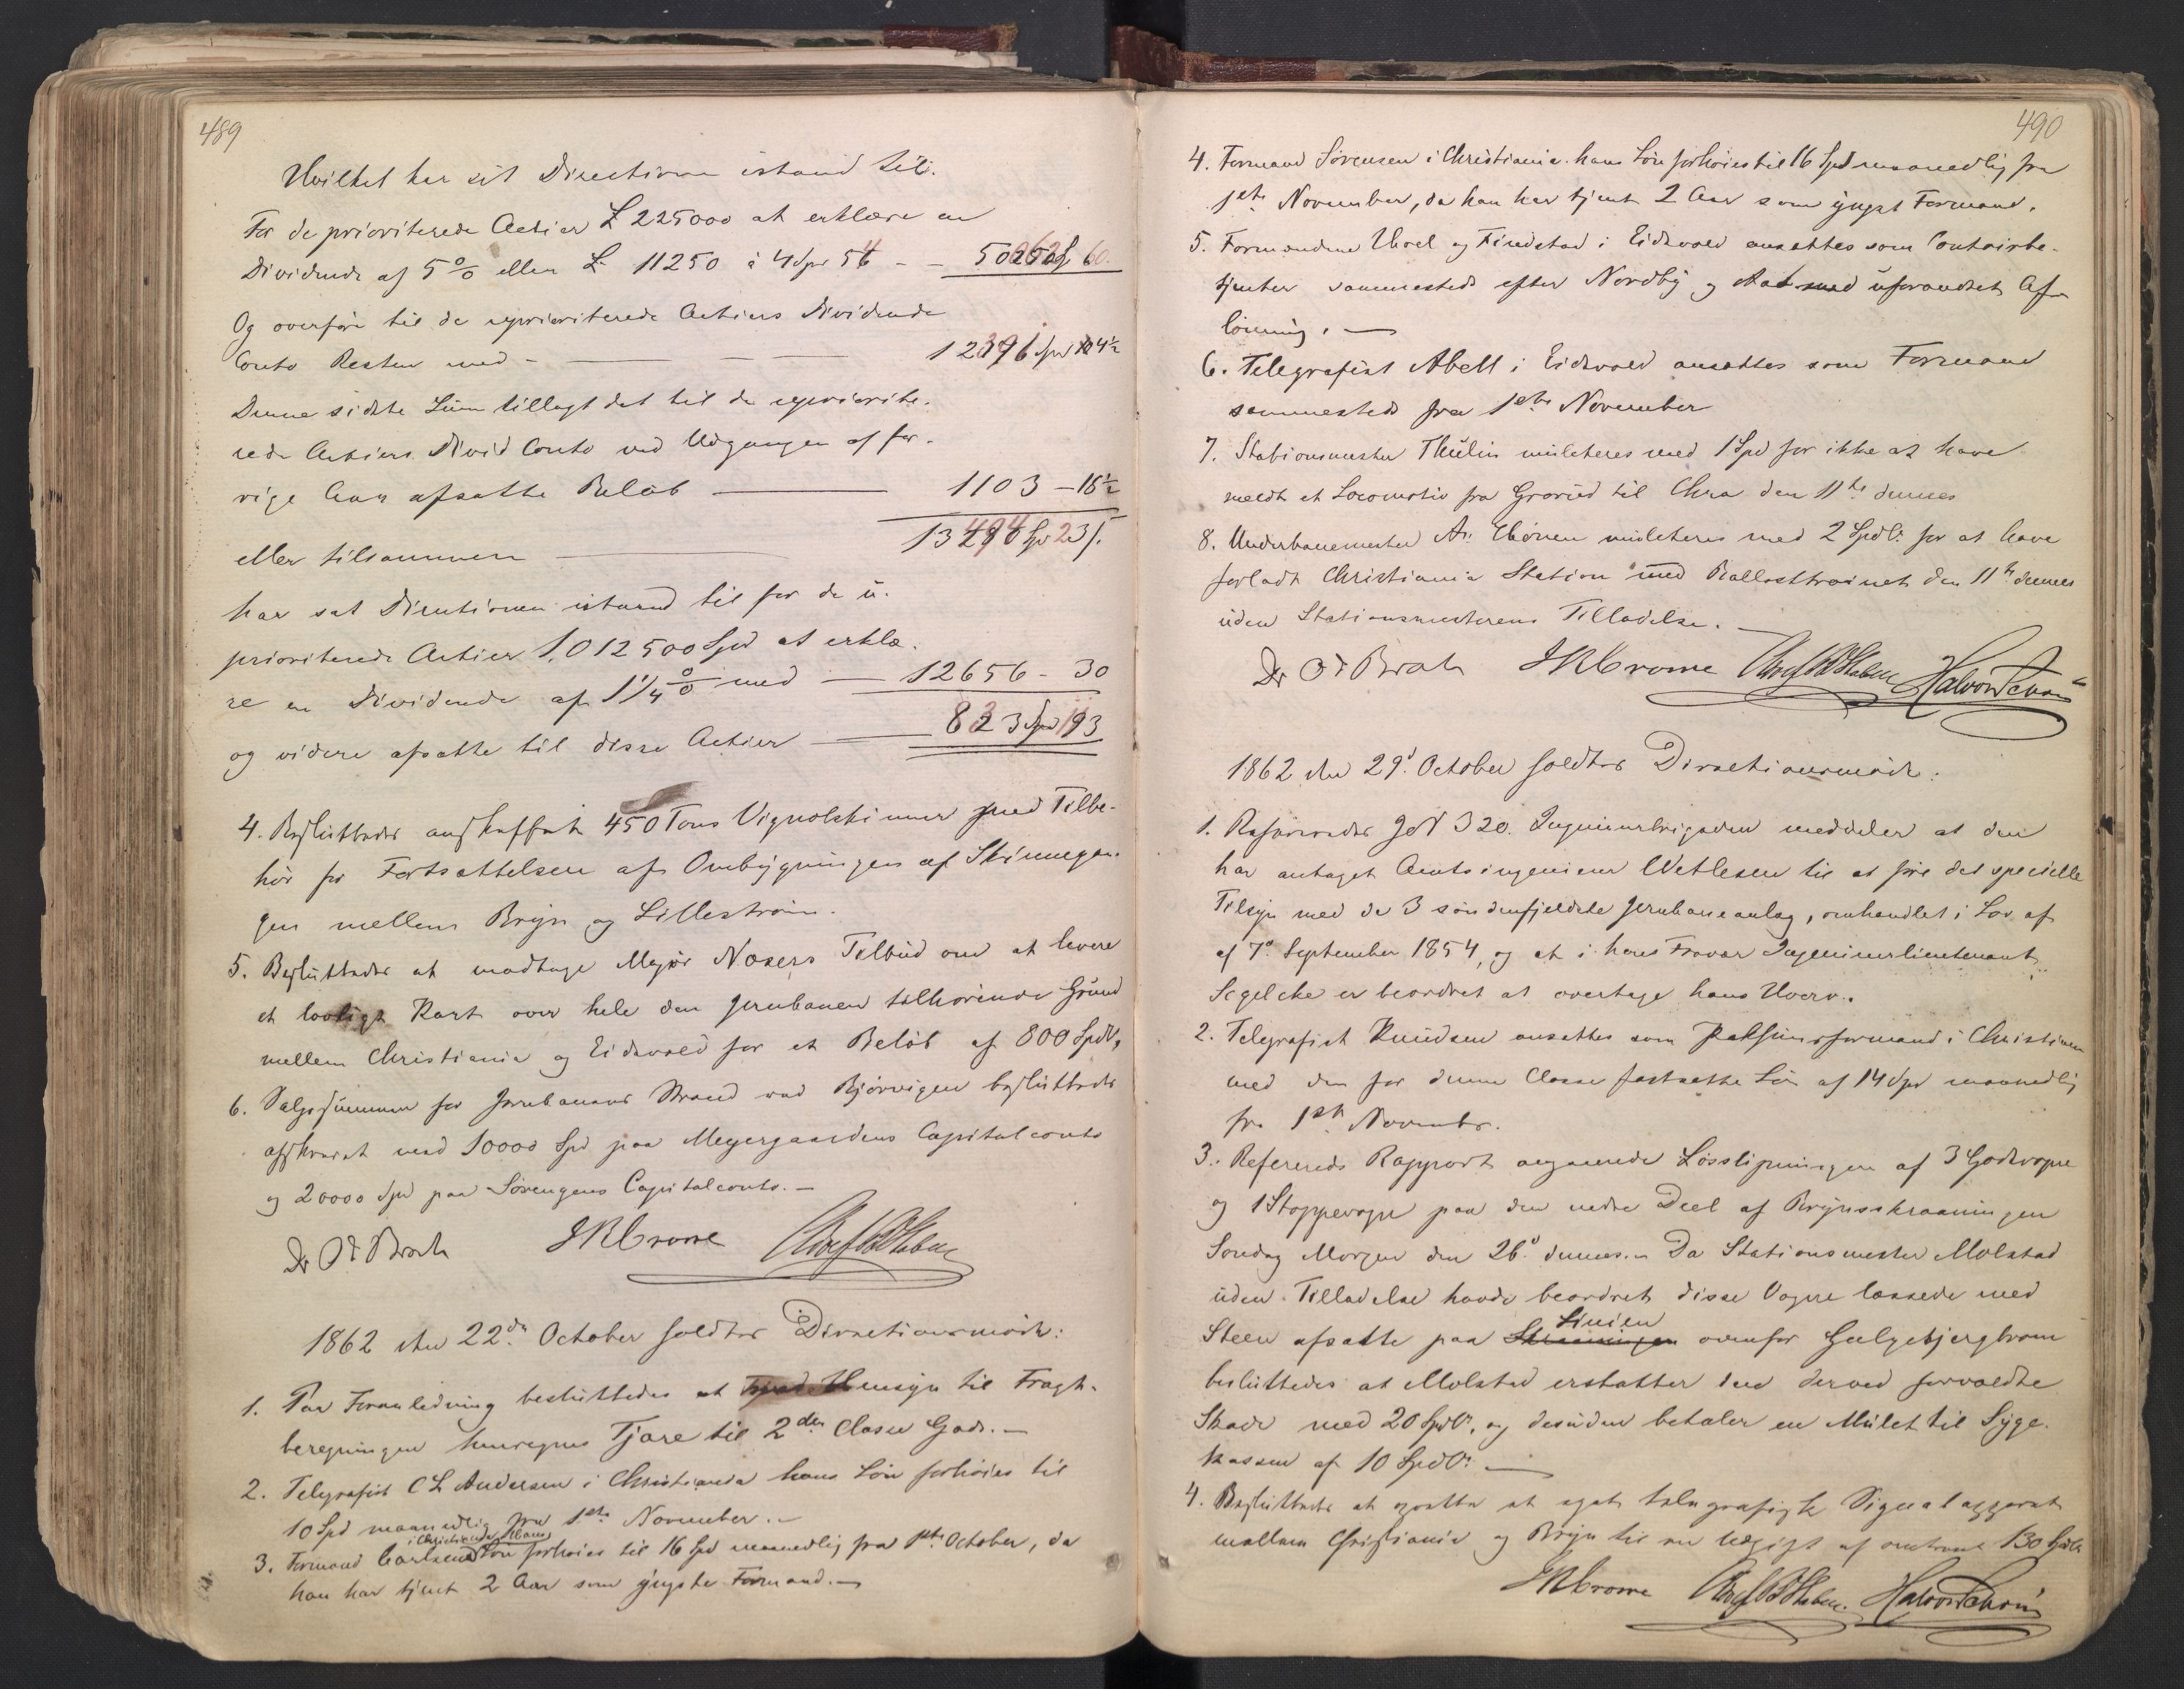 489
Hvilket har sat Directionen istand til:
For de prioriterede Actier £ 225000 at erklære en
Dividende af 5% eller £ 11250 à 4 Spd 54 - - 50262 60.
Og overføre til de uprioriterede Actiers Dividende
Conto Resten med - 12391 Spd 4½
Denne sidste Sum tillagt det til de upriorite-
rede Actiers Divid Conto ved Udgangen af for-
rige Aar afsatte Beløb 1103 - 18½
eller tilsammen 13494 Spd 23 /.
har sat Directionen istand til for de u-
prioriterede Actier 1,012500 Spd at erklæ-
re en Dividende af 1¼% med 12656 - 30
og videre afsatte til disse Actier 837 Spd 113
4. Besluttedes anskaffet 450 Tons Vignolskinner med Tilbe-
hør for Fortsættelsen af Ombygningen af Skinnegan-
gen mellem Bryn og Lillestrøm.
5. Besluttedes at modtage Major Nosers Tilbud om at levere
et lovligt Kart over hele den Jernbanen tilhørende Grund
mellem Christiania og Eidsvold for et Beløb af 800 Spdlr,
6. Salgssummen for Jernbanens Strand ved Bjørvigen besluttedes
afskrevet med 10000 Spd paa Meyergaardens Capitalconto
og 20000 Spd paa Sørengens Capitalconto. -
Dr O J Broch JRCrowe
1862 den 22de October holdtes Directionsmøde:
1. Paa Foranledning besluttedes at Hensyn til Fragt-
beregningen henregnes Tjære til 2den Classe Gods. -
2. Telegrafist C L Andersen i Christiania hans Løn forhøies til
10 Spd maanedlig fra 1ste November. -
i Christiania Hans
3. Formand Carlsens Løn forhøies til 16 Spd maanedlig fra 1ste October, da
han har tjent 2 Aar som yngste Formand. -
490
4. Formand Sørensen i Christiania hans Løn forhøies til 16 Spd maanedlig fra
1ste November, da han har tjent 2 Aar som yngst Formand.
5. Formændene Hoel og Findstad i Eidsvold ansættes som Contoirbe-
tjenter sammesteds efter Nordby og Aas med uforandret Af-
lønning. -
6. Telegrafist Abell i Eidsvold ansættes som Formand
sammesteds fra 1ste November
7. Stationsmester Thulin mulcteres med 1 Spd for ikke at have
meldt et Locomotiv fra Grorud til Chra den 11te dennes
8. Underbanemester Ar. mulcteres med 2 Spdlr for at have
forladt Christiania Station med Ballasttrainet den 11te dennes
uden Stationsmesterens Tilladelse. -
Dr O J Broch JRCrowe Halvor Schou
1862 den 29d October holdtes Directionsmøde:
1. Refereredes JoN 320. Ingenieurbrigaden meddeler at den
har antaget Amtsingenieur Wetlesen til at føre det specielle
Tilsyn med de 3 søndenfjeldske Jernbaneanlæg, omhandlet i Lov af
af 7d September 1854, og at i hans Fravær Ingenieurlieutenant
Segelcke er beordret at overtage hans Hverv.
2. Telegrafist Knudsen ansættes som Pakhuusformand i Christiania
med den for denne Classe fastsatte Løn af 14 Spd maanedlig
fra 1ste Novembr.
3. Refereredes Rapport angaaende Løsslipningen af 3 Godsvogne
og 1 Stoppevogn paa den nedre Deel af Brynsskraaningen
Søndag Morgen den 26d dennes. Da Stationsmester Molstad
uden Tilladelse havde beordret disse Vogne læssede med
Linien
Steen afsatte paa Skraaningen ovenfor Galgebjergbroen
besluttedes at Molstad erstatter den derved forvoldte
Skade med 20 Spdlr, og desuden betaler en Mulct til Syge-
kassen af 10 Spdlr. -
4. Besluttedes at opsætte et eget telegrafisk Signalapparat
mellem Christiania og Bryn til en Udgift af omtrent 130 Spdlr
JRCrowe Halvor Schou